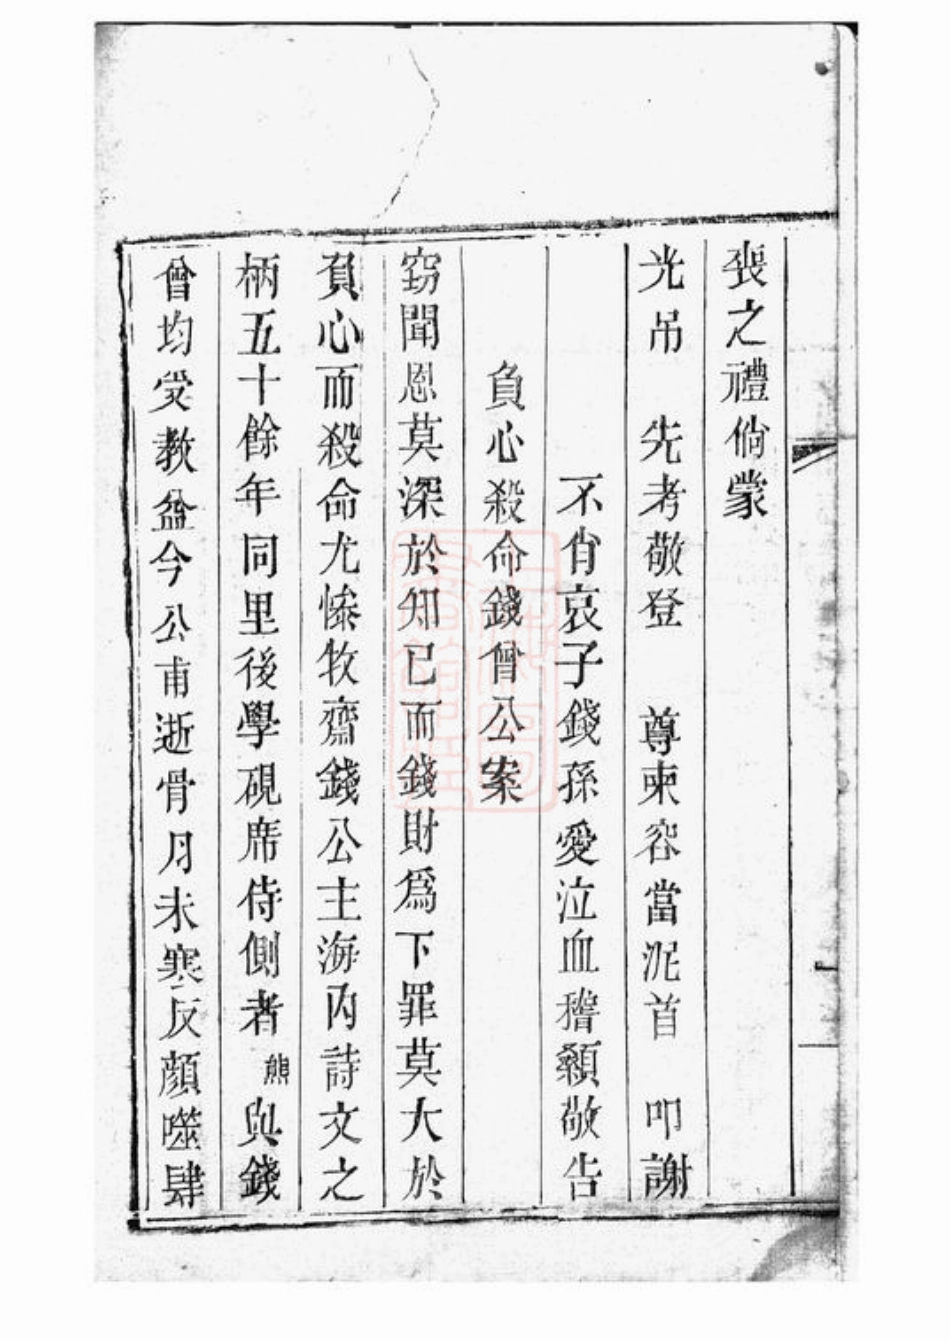 喪之禮倘蒙
光吊　先考敬登　尊柬容當泥首　叩謝
不肖哀子錢孫愛泣血稽顙敬告
負心殺命錢曾公案
竊聞恩莫深於知已而錢財爲下罪莫大於
負心而殺命尤慘牧齋錢公主海內詩文之
柄五十餘年同里後學硯席侍側者熊與錢
曾均受敎益今公甫逝骨月未寒反顏噬肆